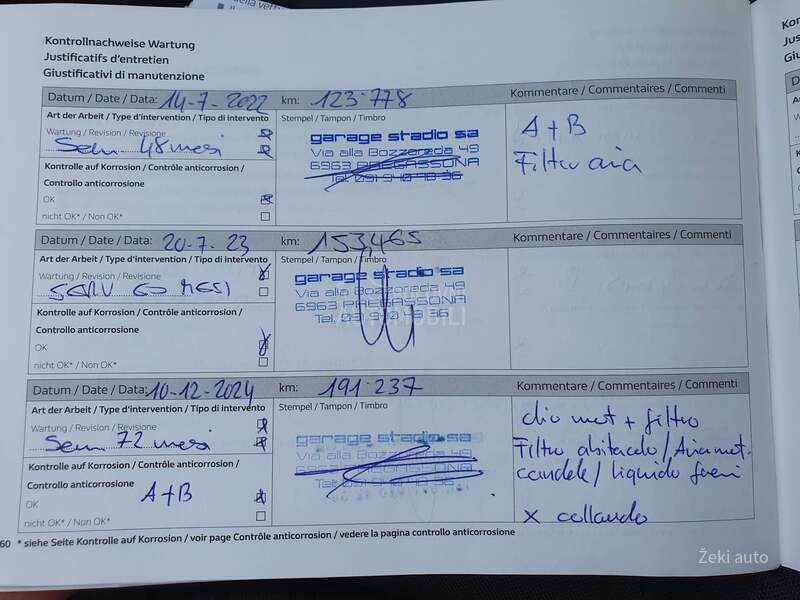 Kontrollnachweise Wartung
Justificatifs d'entretien
Giustificativi di manutenzione
Datum / Date / Data: 14-7-2022 km: 123.778 Kommentare / Commentaires / Commenti
Art der Arbeit / Type d'intervention / Tipo di intervento Stempel / Tampon / Timbro
Wartung / Revision / Revisione
Serv 48 mesi
garage stadio sa
Via alla Bozzoreda 49
6963 PREGASSONA
Tel. 091 940 49 36
A+B
Filtro aria
Kontrolle auf Korrosion / Contrôle anticorrosion /
Controllo anticorrosione
OK
nicht OK* / Non OK*
Datum / Date / Data: 20-7-23 km: 153,465 Kommentare / Commentaires / Commenti
Art der Arbeit / Type d'intervention / Tipo di intervento Stempel / Tampon / Timbro
Wartung / Revision / Revisione
SERV 60 MESI
garage stadio sa
Via alla Bozzoreda 49
6963 PREGASSONA
Tel. 091 940 49 36
Kontrolle auf Korrosion / Contrôle anticorrosion /
Controllo anticorrosione
OK
nicht OK* / Non OK*
Datum / Date / Data: 10-12-2024 km: 191.237 Kommentare / Commentaires / Commenti
Art der Arbeit / Type d'intervention / Tipo di intervento Stempel / Tampon / Timbro
Wartung / Revision / Revisione
Serv 72 mesi
garage stadio sa
Via alla Bozzoreda 49
6963 PREGASSONA
Tel. 091 940 49 36
olio mot + filtro
Filtro abitacolo / Aria mot.
candele / liquido freni
x collaudo
Kontrolle auf Korrosion / Contrôle anticorrosion /
Controllo anticorrosione
A+B
OK
nicht OK* / Non OK*
60 * siehe Seite Kontrolle auf Korrosion / voir page Contrôle anticorrosion / vedere la pagina controllo anticorrosione
Žeki auto